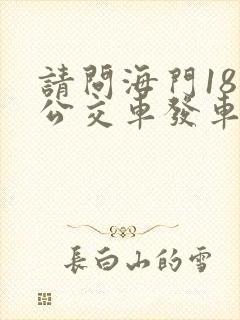 請問海門18
公交車發車
長白山的雪